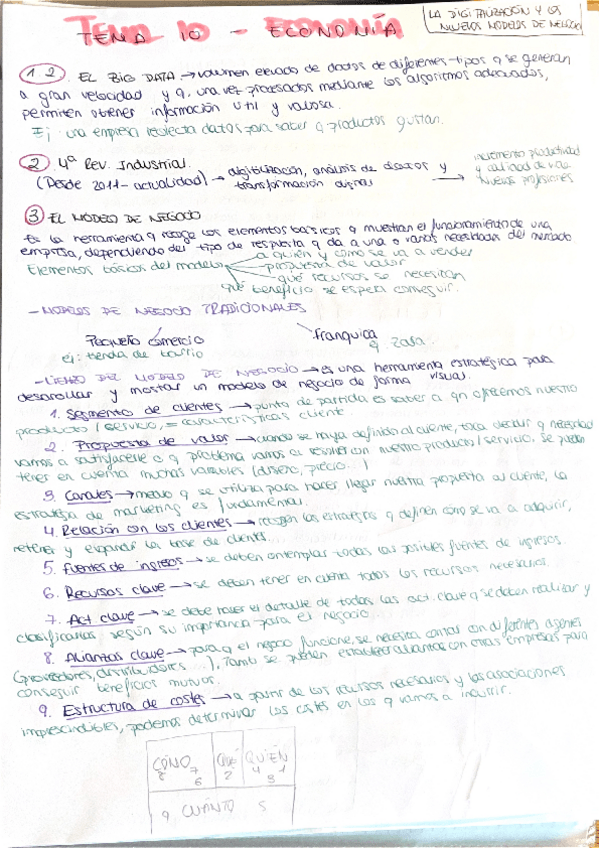 TEMA 10 - ECONOMÍA
LA DIGITALIZACIÓN Y LOS
NUEVOS MODELOS DE NEGOCIO
1 2. EL BIG DATA → volumen elevado de datos de diferentes tipos q se generan
a gran velocidad y q, una vez procesados mediante los algoritmos adecuados,
permiten obtener información útil y valiosa.
Ej: una empresa recolecta datos para saber q productos gustan.
2. 4ª Rev. Industrial.
(Desde 2011 - actualidad) → digitilización, análisis de datos y
transformación digital
→ incremento productividad
y calidad de vida
Nuevas profesiones
3 EL MODELO DE NEGOCIO
Es la herramienta q recoge los elementos básicos q muestran el funcionamiento de una
empresa, dependiendo del tipo de respuesta q da a una o varias necesidades del mercado
Elementos básicos del modelo
a quién y cómo se va a vender
propuesta de valor
qué recursos se necesitan
qué beneficio se espera conseguir.
- MODELOS DE NEGOCIO TRADICIONALES
Pequeño comercio
ej: tienda de barrio
franquicia
ej. Zara
- LIENZO DEL MODELO DE NEGOCIO → es una herramienta estratégica para
desarrollar y mostrar un modelo de negocio de forma visual.
1. Segmento de clientes → punto de partida es saber a qn ofrecemos nuestro
producto / servicio, = características cliente
2. Propuesta de valor → cuando se haya definido al cliente, toca decidir q necesidad
vamos a satisfacerle o q problema vamos a resolver con nuestro producto / servicio. Se pueden
tener en cuenta muchas variables (diseño, precio...)
3. Canales → medio q se utiliza para hacer llegar nuestra propuesta al cliente, la
estrategia de marketing es fundamental.
4. Relación con los clientes → recogen las estrategias q definen cómo se va a adquirir,
retener y expandir la base de clientes.
5. Fuentes de ingresos → se deben contemplar todas las posibles fuentes de ingresos.
6. Recursos clave → se deben tener en cuenta todos los recursos necesarios.
7. Act clave → se debe hacer el detalle de todas las act. clave q se deben realizar y
clasificarlas según su importancia para el negocio
8. Alianzas clave → para q el negocio funcione, se necesita contar con diferentes agentes
(proveedores, distribuidores...), Tamb se pueden establecer alianzas con otras empresas para
conseguir beneficios mutuos.
9. Estructura de costes → a partir de los recursos necesarios y las asociaciones
imprescindibles, podemos determinar los costes en los q vamos a incurrir.
CÓMO QUÉ QUIÉN
8 7 6 2 4 1 3
9 CUÁNTO 5